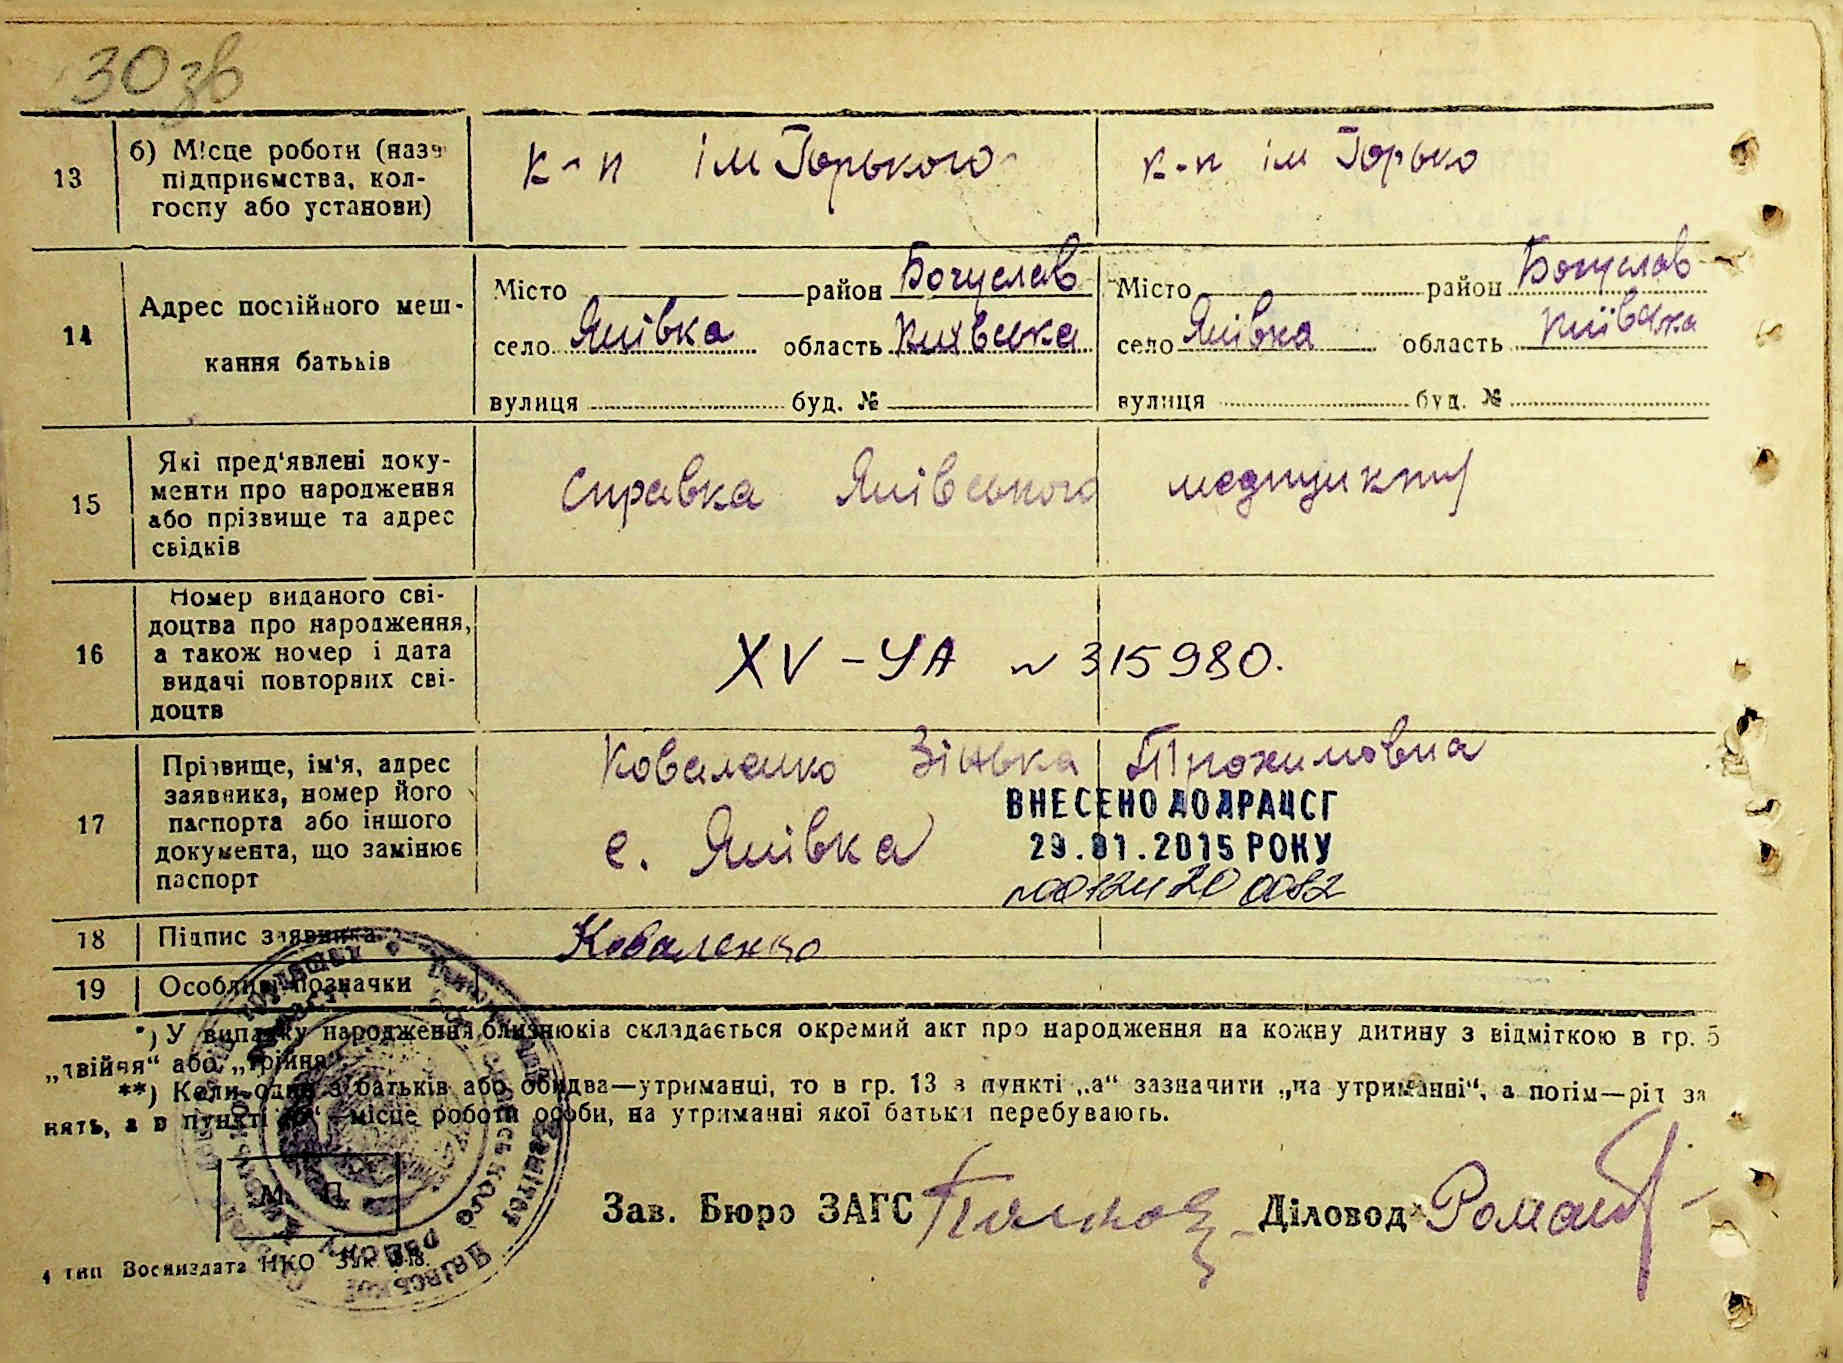 30 зв
13
б) Місце роботи (назв
підприємства, кол-
госпу або установи)
к-п ім Горького
к-п ім Горько
14
Адрес постійного меш-
кання батьків
Місто район Богуслав
село Яцівка область Київська
вулиця буд. №
Місто район Богуслав
село область Київська
вулиця буд. №
15
Які пред'явлені доку-
менти про народження
або прізвище та адрес
свідків
справка медпункту
16
Номер виданого сві-
доцтва про народження,
а також номер і дата
видачі повторних сві-
доцтв
XV – УА № 315980.
17
Прізвище, ім'я, адрес
заявника, номер його
паспорта або іншого
документа, що замінює
паспорт
Коваленко Зінька Трохимовна
с.
ВНЕСЕНО ДО ДРАЦСГ
29.01.2015 РОКУ
18
Підпис заявника
Коваленко
19
Особливі позначки
*) У випадку народження близнюків складається окремий акт про народження на кожну дитину з відміткою в гр. 5
„двійня“ або „трійня“.
**) Коли один з батьків або обидва—утриманці, то в гр. 13 в пункті „а“ зазначити „на утриманні“, а потім—рід за
нять, а в пункті „б“—місце роботи особи, на утриманні якої батьки перебувають.
М. П.
Зав. Бюро ЗАГС
Діловод
4 тип Воениздата НКО Зак.